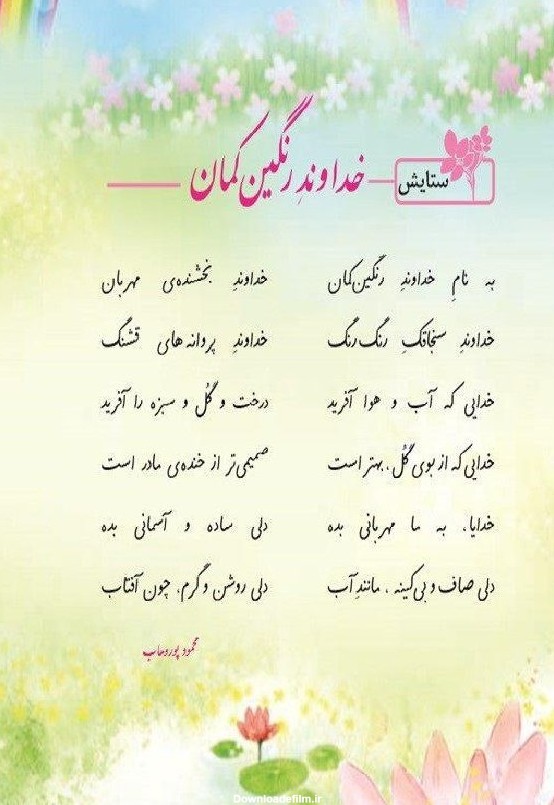 ستایش
خداوندِ رنگین‌کمان
به نامِ خداوندِ رنگین‌کمان خداوندِ بخشنده‌ی مهربان
خداوندِ سنجاقکِ رنگ‌رنگ خداوندِ پروانه‌های قشنگ
خدایی که آب و هوا آفرید درخت و گُل و سبزه را آفرید
خدایی که از بوی گُل، بهتر است صمیمی‌تر از خنده‌ی مادر است
خدایا، به ما مهربانی بده دلی ساده و آسمانی بده
دلی صاف و بی‌کینه، مانندِ آب دلی روشن و گرم، چون آفتاب
محمود پوروهاب
Downloadefilm.ir